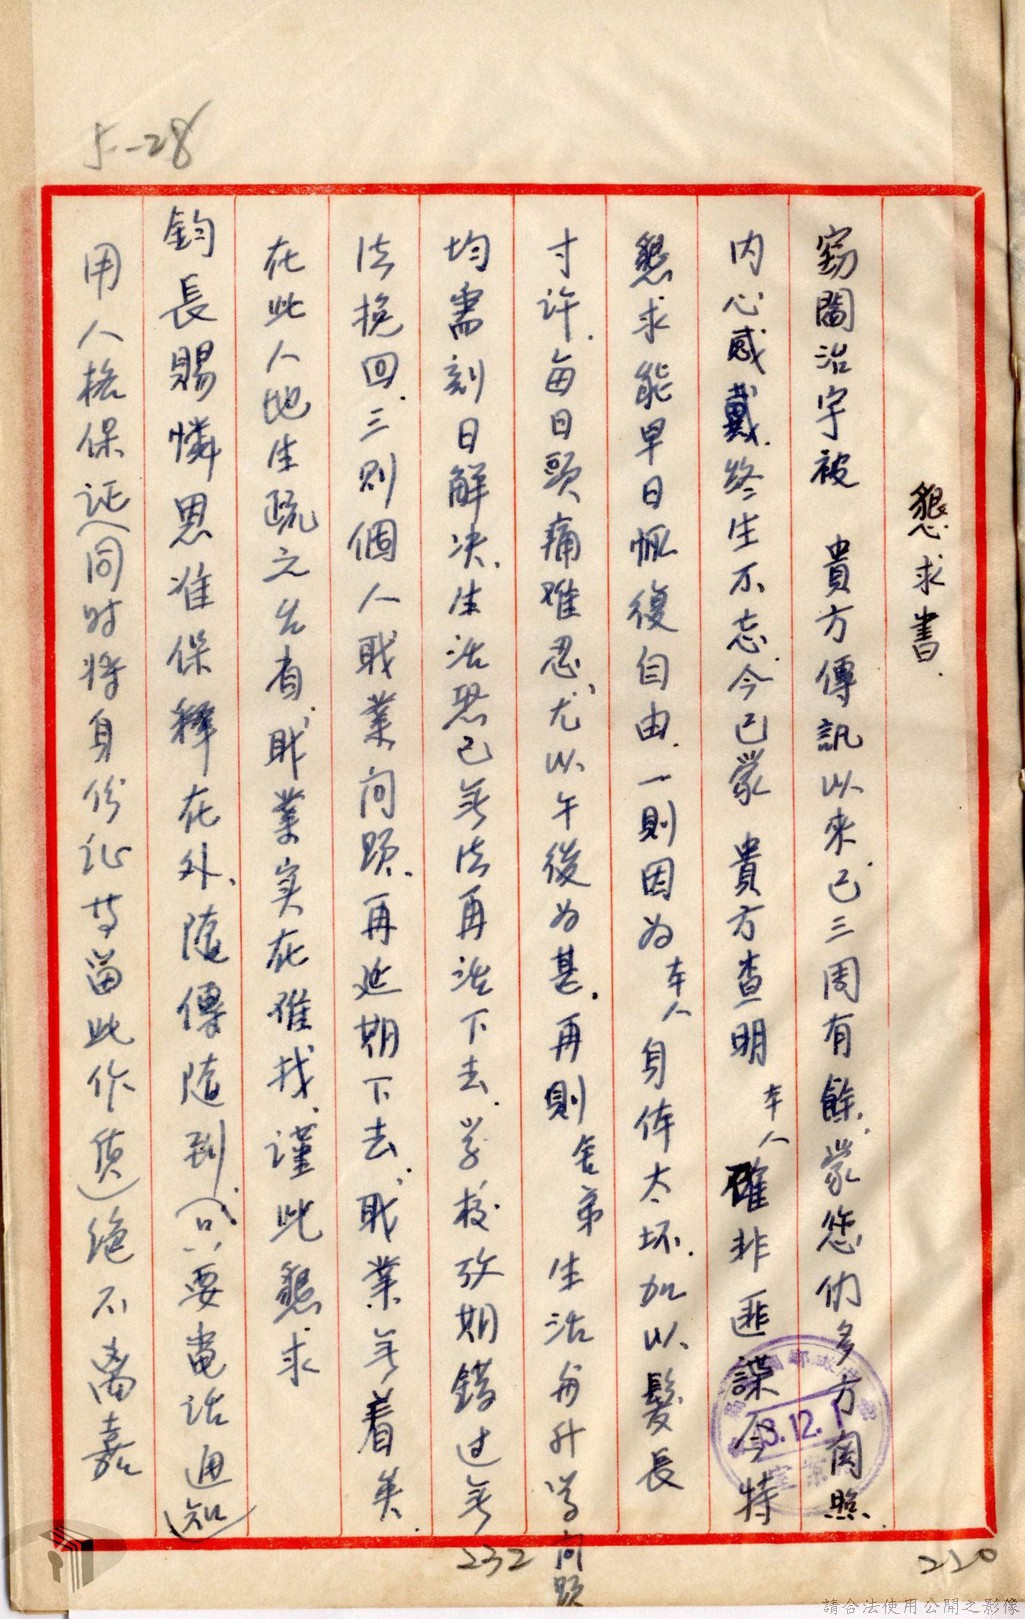 5-28
懇求書.
竊閻治宇被　貴方傳訊以來.已三周有餘.蒙您們多方関照.
內心感戴.終生不忘.今已蒙　貴方查明　本人確非匪諜今特
懇求能早日恢復自由.一則因为本人身体太坏.加以髮長
寸许.每日頭痛难忍、尤以午後为甚.再則舍弟生活与升学问题
均需刻日解决.生活恐已无法再活下去.学校攷期錯过无
法挽回.三则個人职業问题.再延期下去.职業无着矣.
在此人地生疏之台省.职業实在难找.谨此懇求
鈞長賜憐恩准保释在外、随傳随到.(只要電话通知)
用人格保证(同时将身份证等留此作质)绝不离嘉
3.12.1
232
220
請合法使用公開之影像